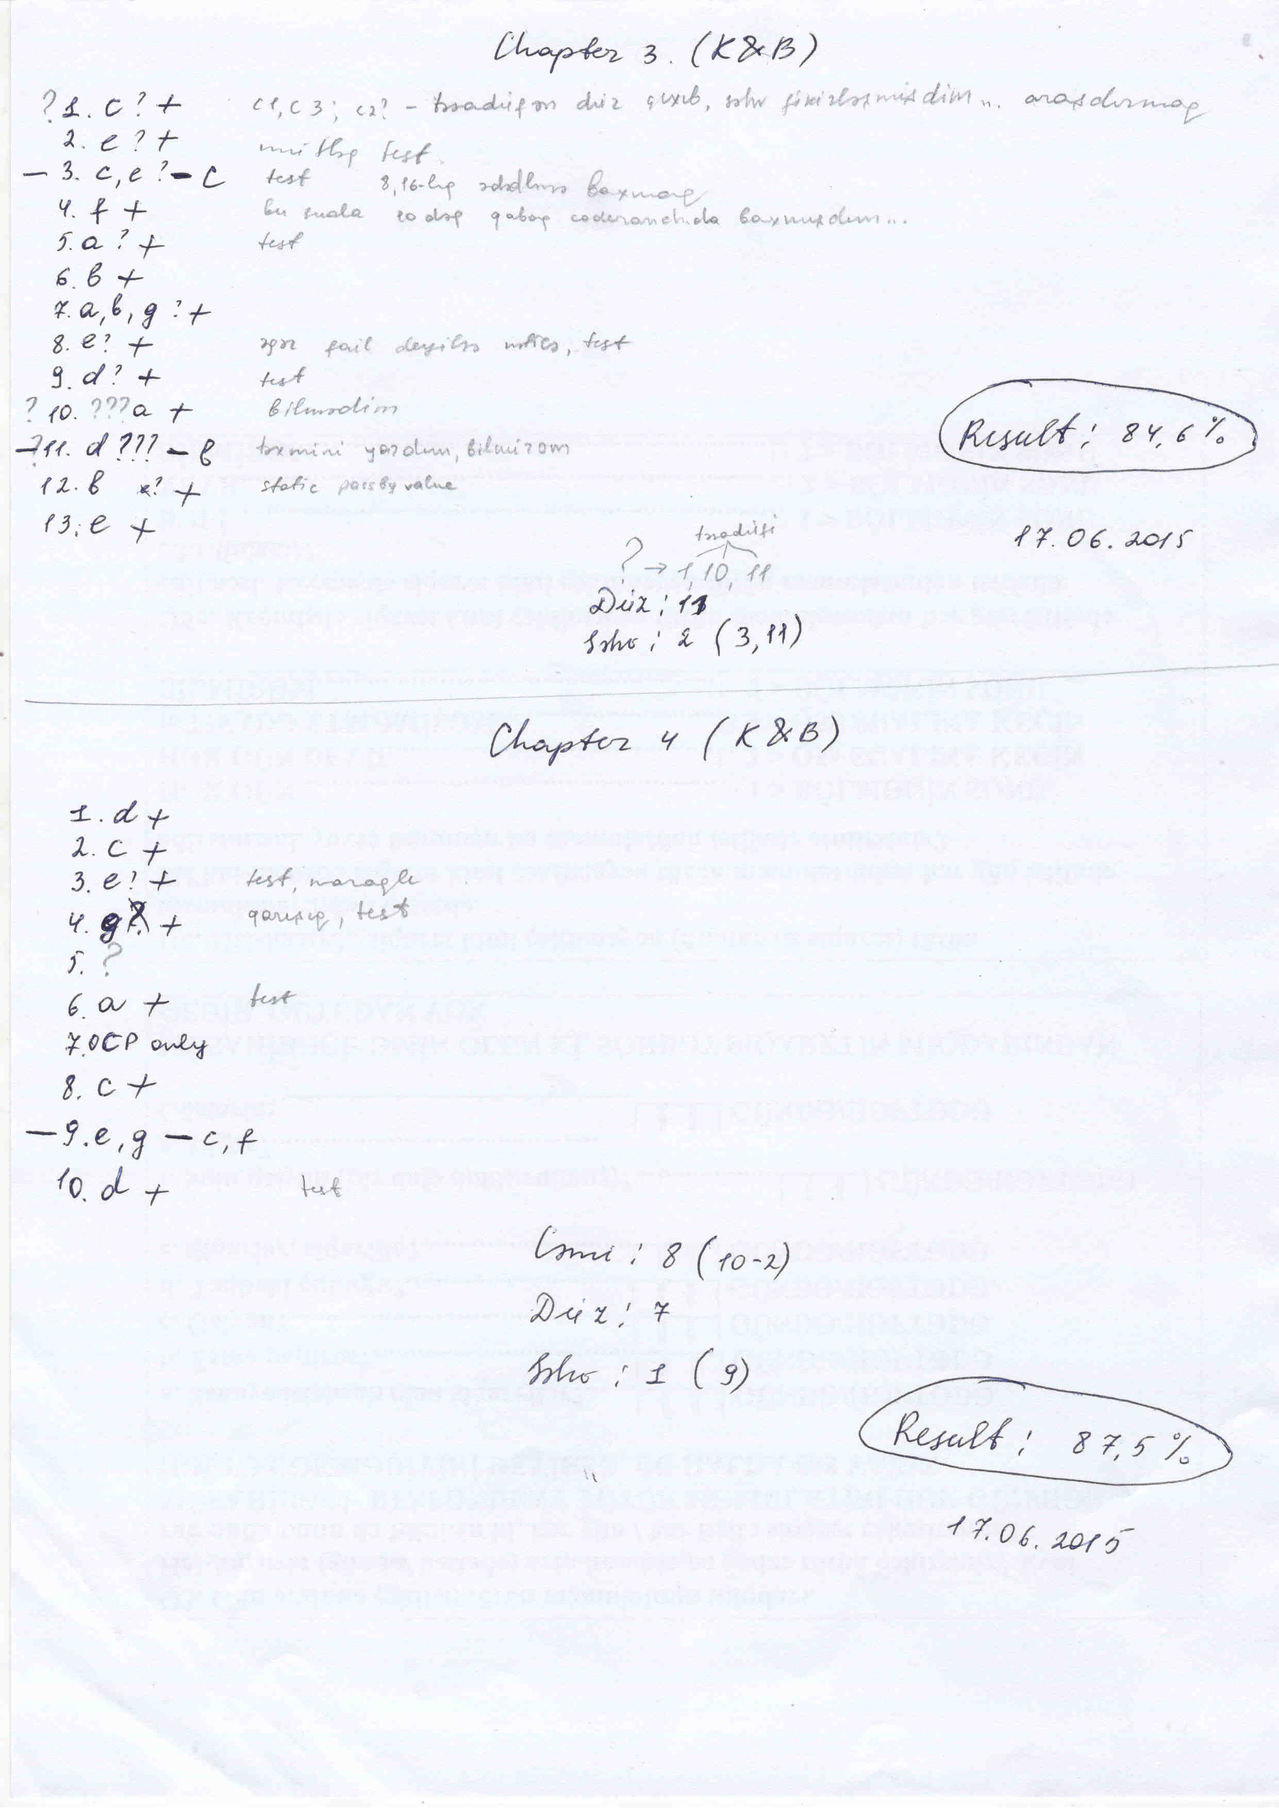 Chapter 3. (K&B)
? 1. c ? + c1, c3; c2? - təsadüfən düz çıxıb, səhv fikirləşmişdim... araşdırmaq
2. e ? + mütləq test.
- 3. c, e ? - c test 8, 16-lıq ədədlərə baxmaq
4. f + bu suala 10 dəq qabaq coderanchda baxmışdım...
5. a ? + test
6. b +
7. a, b, g ? +
8. e? + əgər fail deyilsə nəticə, test
9. d? + test
? 10. ???a + bilmədim
-?11. d ??? - b təxmini yazdım, bilmirəm
12. b ? + static pass by value
13. e +
Result: 84,6%
17.06.2015
təsadüfi
? → 1, 10, 11
Düz: 11
Səhv: 2 (3,11)
Chapter 4 (K&B)
1. d +
2. c +
3. e? + test, maraqlı
4. g? + qarışıq, test
5. ?
6. a + test
7. OCP only
8. c +
- 9. e, g - c, f
10. d + test
Cəmi: 8 (10-2)
Düz: 7
Səhv: 1 (9)
Result: 87,5%
17.06.2015